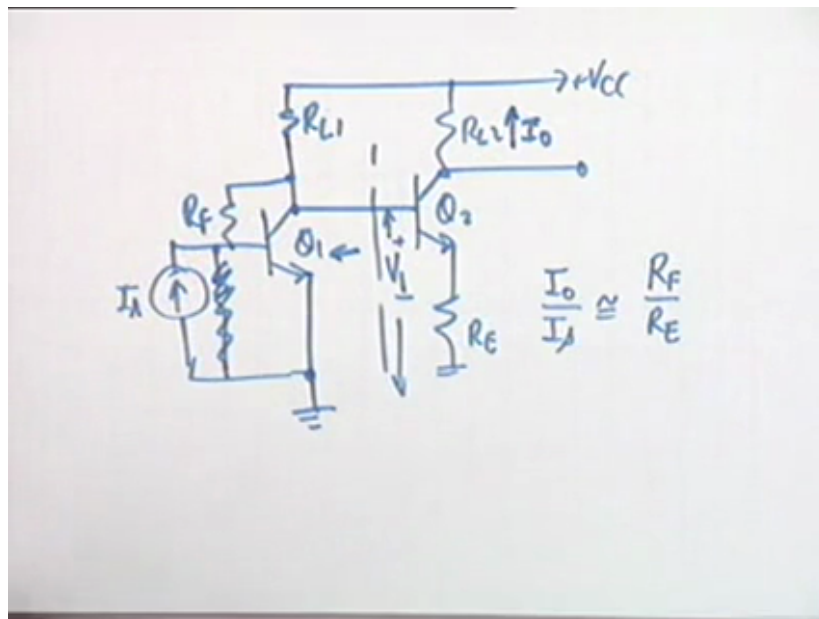 +VCC
RL1
RL2 ↑ I0
RF
Q1
Q2
+
V1
-
Is
RE
I0/Is ≅ RF/RE